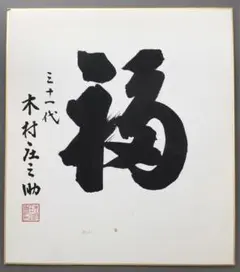 福
三十一代
木村庄之助